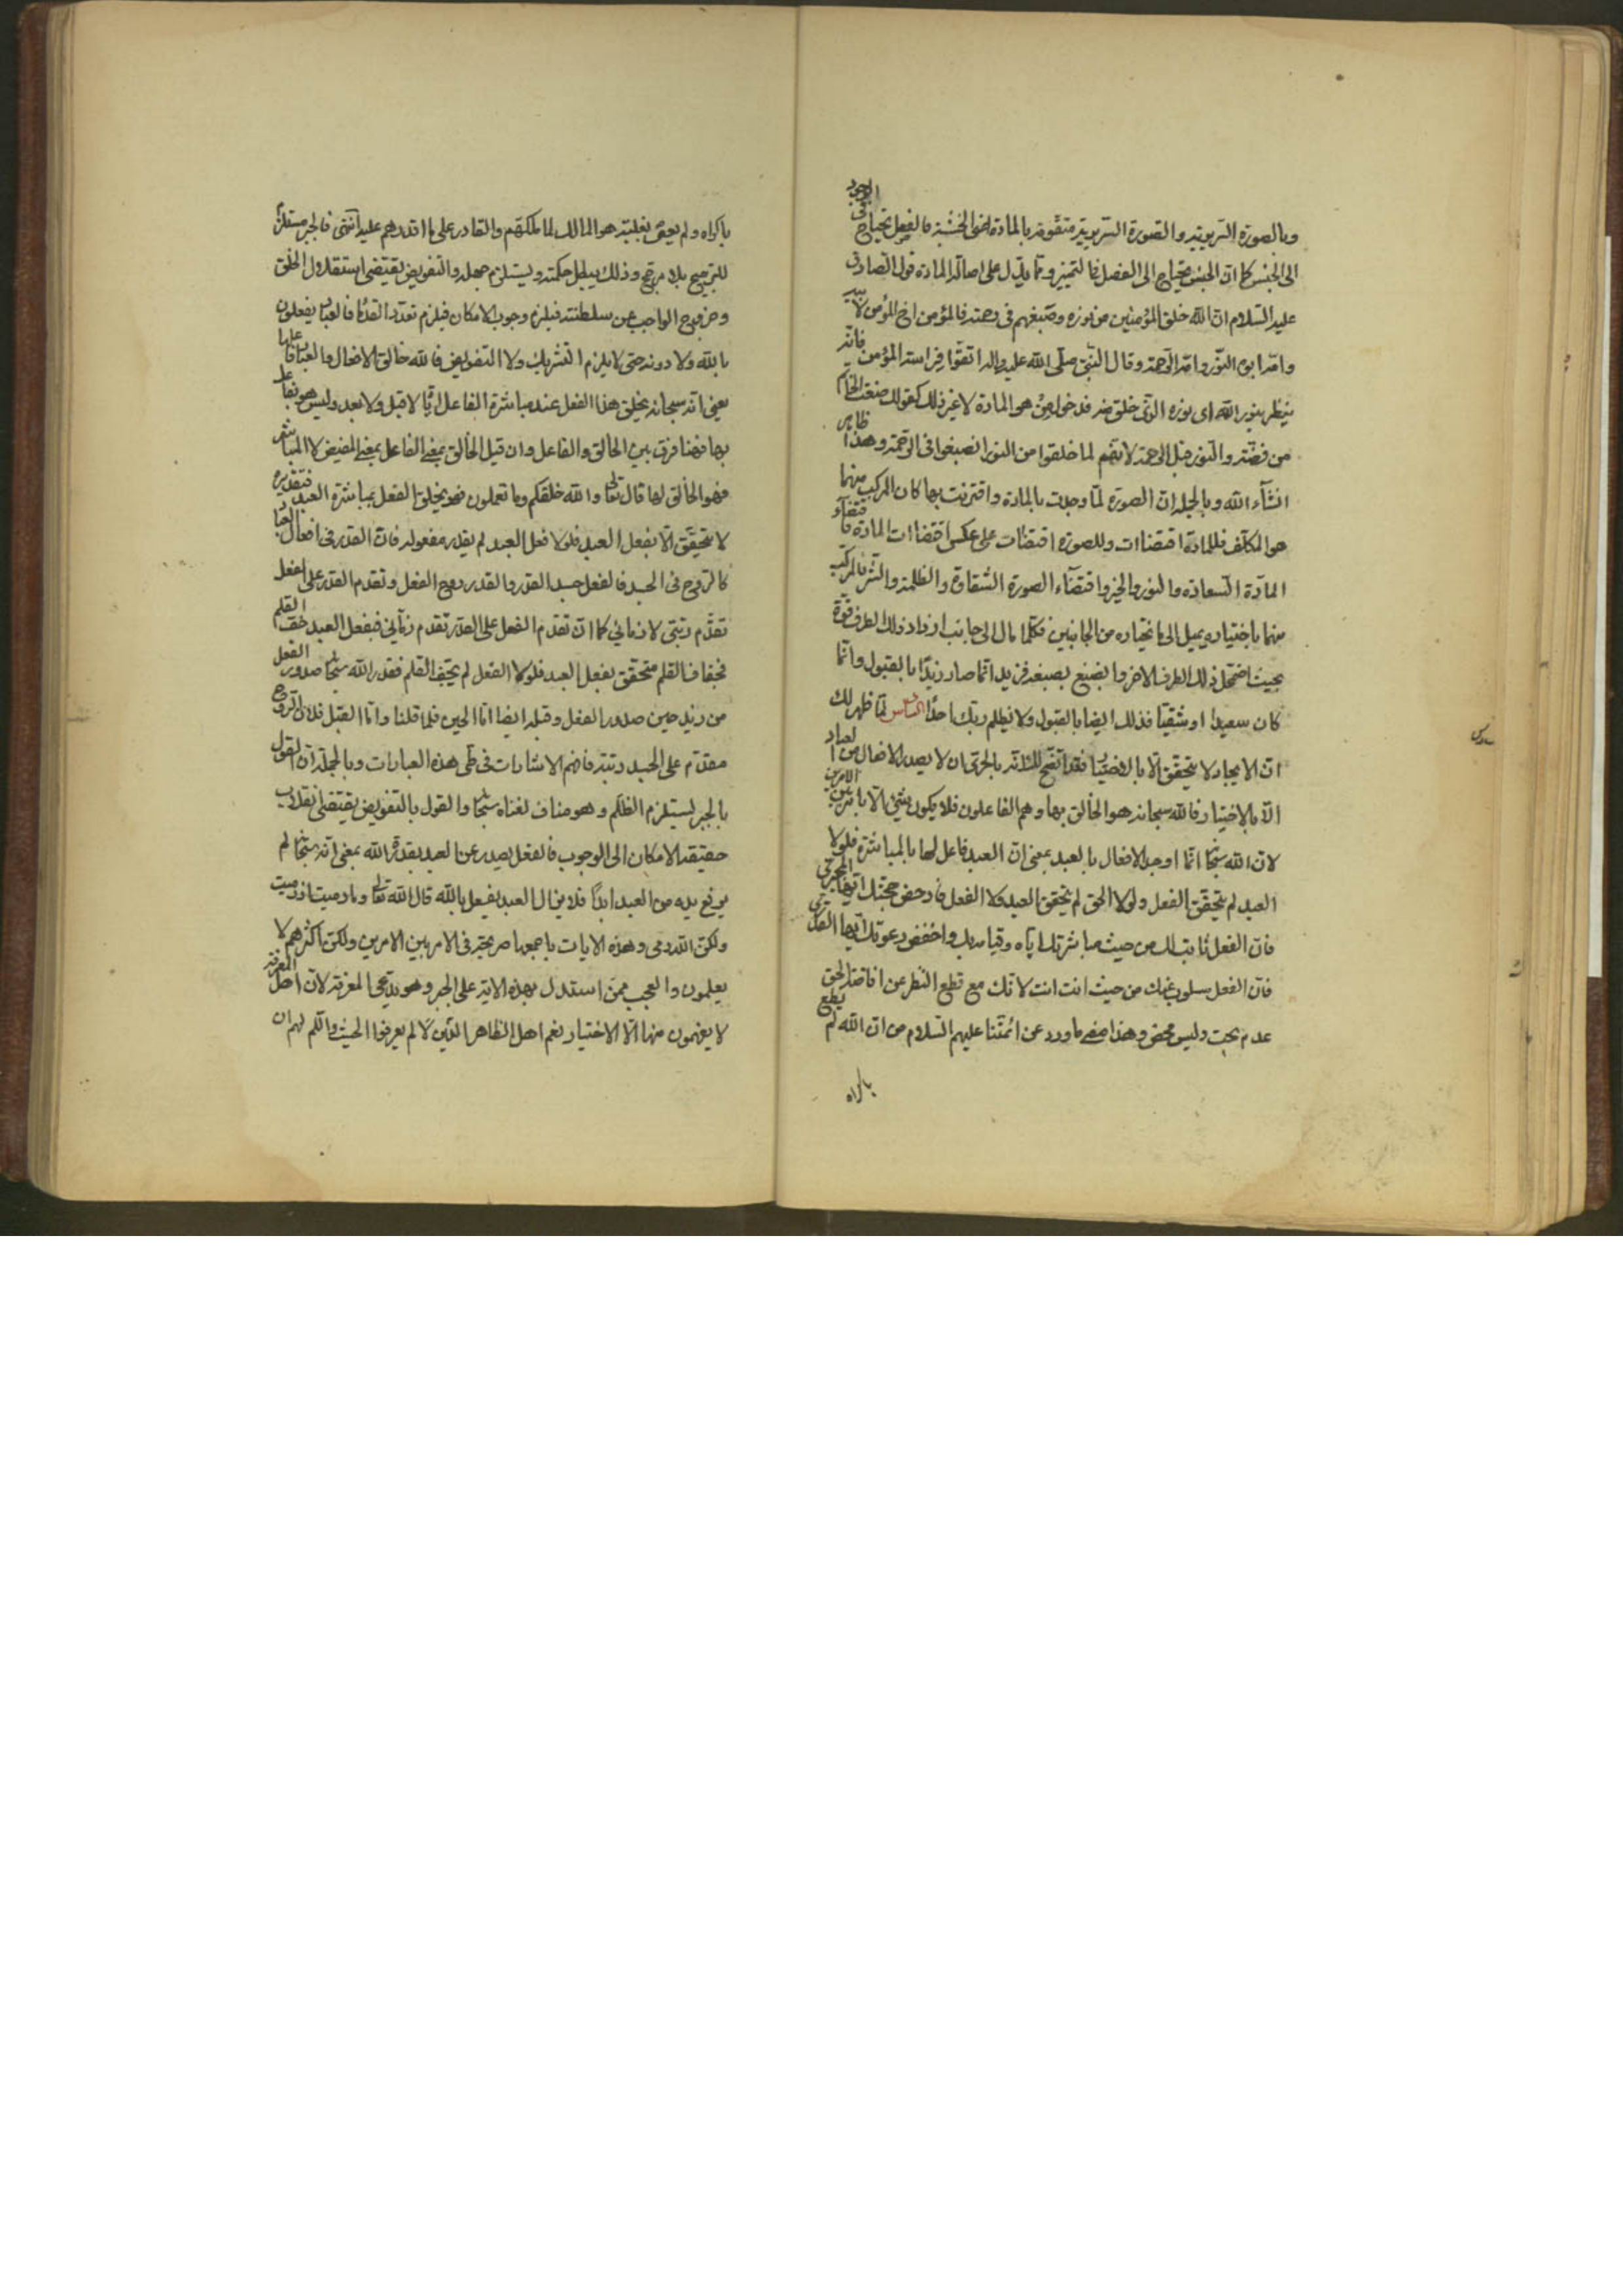 وبالصورة السريرية والصورة السريرية متقومة بالمادة اعنى الخشبة فالفصل يحتاج فى الوجود
الى الجنس كما ان الجنس يحتاج الى الفصل فى التميز ومما يدل على اصالة المادة قول الصادق
عليه السلام ان الله خلق المؤمنين من نوره وصبغهم فى رحمته فالمؤمن اخ المؤمن لابيه
وامه ابوه النور وامه الرحمة وقال النبى صلى الله عليه واله اتقوا فراسة المؤمن فانه
ينظر بنور الله اى نوره الذى خلق منه فدخول من هو المادة لا غير ذلك كقولك صنعت الخاتم
من فضة والنور قبل الرحمة لانهم لما خلقوا من النور انصبغوا فى الرحمة وهذا ظاهر
انشاء الله وبالجملة ان الصورة لما وجدت بالمادة واقترنت بها كان المركب منهما
هو المكلف فللمادة اقتضاات وللصورة اقتضاات على عكس اقتضاات المادة فاقتضاء
المادة السعادة والنور والخير واقتضاء الصورة الشقاوة والظلمة والشر فالمركب
منهما باختياره يميل الى ما يختاره من الجانبين فكلما مال الى جانب ازداد ذلك الطرف قوة
بحيث اضمحل ذلك الطرف الاخر وانصبغ بصبغه فزيد انما صار زيدا بالقبول وانما
كان سعيدا او شقيا فذلك ايضا بالقبول ولا يظلم ربك احدا السادس لما ظهر لك
ان الايجاد لا يتحقق الا بال فقد اتضح لك انه بالحرى ان لا يصدر الافعال من العباد
الا بالاختيار فالله سبحانه هو الخالق بها وهم الفاعلون فلا يكون شئ الا بامر بين الامرين
لان الله سبحا انما اوجد الافعال بالعبد بمعنى ان العبد فاعل لها بالمباشرة فلولا
العبد لم يتحقق الفعل ولولا الحق لم يتحقق العبد ولا الفعل فادحض حجتك ايها الجبرى
فان الفعل ثابت لك من حيث مباشرتك اياه وقيامه بك واخفض دعوتك ايها القدرى
فان الفعل مسلوب عنك من حيث انت انت لانك مع قطع النظر عن افاضة الحق
عدم بحت وليس محض وهذا معنى ما ورد عن ائمتنا عليهم السلام من ان الله لم يطع
باكراه
باكراه ولم يعص بغلبة هو المالك لما ملكهم والقادر على ما اقدرهم عليه انتهى فالجبر مستلزم
للترجيح بلا مرجح وذلك يبطل حكمته ويستلزم جهله والتفويض يقتضى استقلال الخلق
وخروج الواجب عن سلطنته فيلزم وجوب الامكان فيلزم تعدد القدما فالعباد يفعلون
بالله ولا دونه حتى لا يلزم التشريك ولا التفويض فالله خالق الافعال والعباد فاعلها
يعنى انه سبحانه يخلق هذا الفعل عند مباشرة الفاعل اياها لا قبل ولا بعد وليس هو بفاعل
بها فهنا فرق بين الخالق والفاعل وان قيل الخالق بمعنى الفاعل بمعنى المفيض لا المباشر
فهو الخالق لها قال تعالى والله خلقكم وما تعملون فهو يخلق الفعل بمباشرة العبد فتقديره
لا يتحقق الا بفعل العبد فلولا فعل العبد لم يقدر مفعوله فان القدر فى افعال العباد
كالروح فى الجسد فالفعل جسد القدر والقدر روح الفعل وتقدم القدر على الفعل
تقدم رتبى لا زمانى كما ان تقدم الفعل على القدر تقدم زمانى فبفعل العبد جف القلم
فجفاف القلم متحقق بفعل العبد فلولا الفعل لم يجف القلم فقدر الله سبحا صدور الفعل
من زيد حين صدور الفعل وقبله ايضا اما الحين فلما قلنا واما القبل فلان الروح
مقدم على الجسد رتبة فافهم الاشارات فى طى هذه العبارات وبالجملة ان القول
بالجبر يستلزم الظلم وهو مناف لغناه سبحا والقول بالتفويض يقتضى انقلاب
حقيقة الامكان الى الوجوب فالفعل يصدر عن العبد بقدرة الله بمعنى انه سبحا لم
يرفع يده من العبد ابدا فلا يزال العبد يفعل بالله قال الله تعالى وما رميت اذ رميت
ولكن الله رمى وهذه الايات باجمعها صريحة فى الامر بين الامرين ولكن اكثرهم لا
يعلمون والعجب ممن استدل بهذه الاية على الجبر وهو يدعى المعرفة لان اهل المعرفة
لا يفهمون منها الا الاختيار نعم اهل الظاهر الذين لم يعرفوا الحيث واللم لهم ان